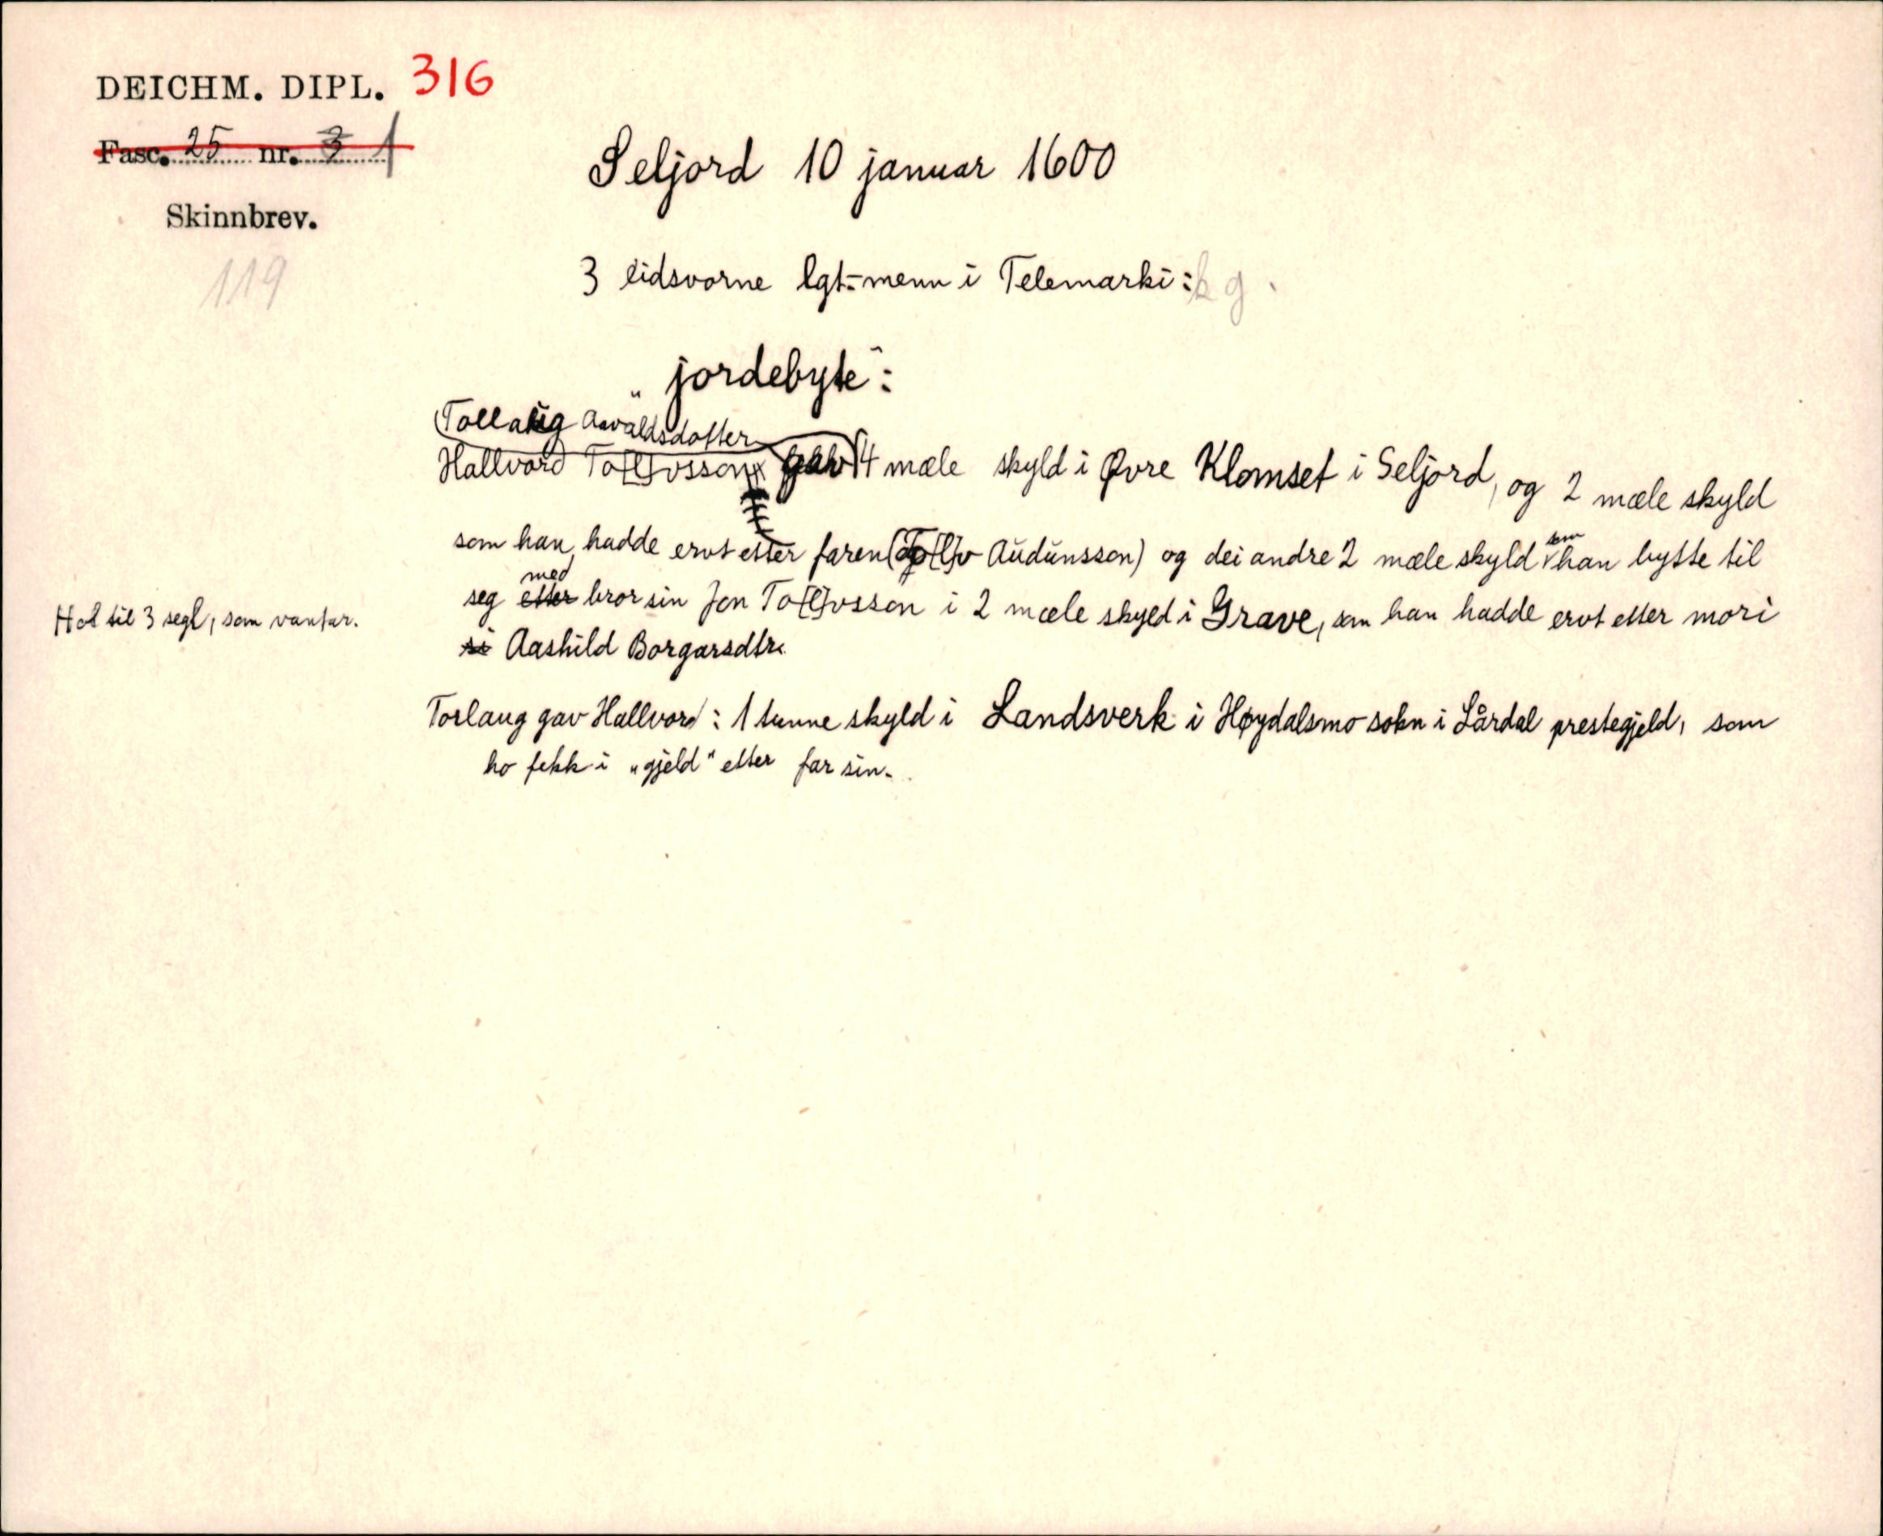 DEICHM. DIPL. 316
Fasc. 25 nr. 3 1
Skinnbrev.
119
Seljord 10 januar 1600
3 eidsvorne lgt.-menn i Telemarki: k g.
"jordebyte":
Tollaug Aavaldsdotter
Hallvord To[l]vsson gav 4 mæle skyld i Øvre Klomset i Seljord, og 2 mæle skyld
som han hadde ervt etter faren (To[l]v Audunsson) og dei andre 2 mæle skyld som han bytte til
seg etter med bror sin Jon To[l]vsson i 2 mæle skyld i Grave, som han hadde ervt etter mori
si Aashild Borgarsdtr.
Hol til 3 segl, som vantar.
Torlaug gav Hallvord: 1 tunne skyld i Landsverk i Høydalsmo sokn i Lårdal prestegjeld, som
ho fekk i "gjeld" etter far sin.